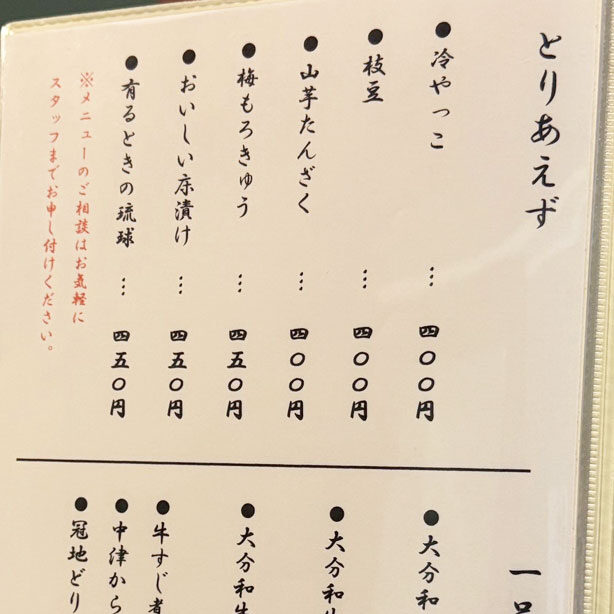 とりあえず
●冷やっこ … 四〇〇円
●枝豆 … 四〇〇円
●山芋たんざく … 四〇〇円
●梅もろきゅう … 四五〇円
●おいしい床漬け … 四五〇円
●有るときの琉球 … 四五〇円
※メニューのご相談はお気軽に
スタッフまでお申し付けください。
一品
●大分和
●大分和牛
●大分和牛
●牛すじ煮
●中津から
●冠地どり